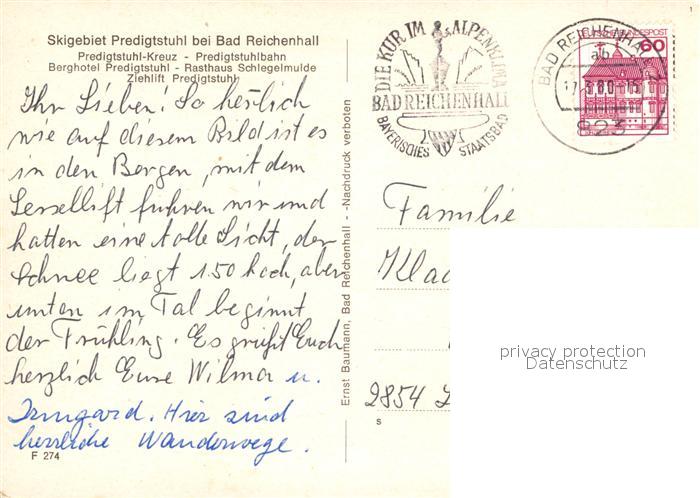 Skigebiet Predigtstuhl bei Bad Reichenhall
Predigtstuhl-Kreuz - Predigtstuhlbahn
Berghotel Predigtstuhl - Rasthaus Schlegelmulde
Ziehlift Predigtstuhl
Ihr Lieben! So herrlich
wie auf diesem Bild ist es
in den Bergen, mit dem
Sessellift fuhren wir und
hatten eine tolle Sicht, der
Schnee liegt 1.50 hoch, aber
unten im Tal beginnt
der Frühling. Es grüßt Euch
herzlich Eure Wilma u.
Irmgard. Hier sind
herrliche Wanderwege.
F 274
Ernst Baumann, Bad Reichenhall - -Nachdruck verboten
DIE KUR IM ALPENKLIMA
BAD REICHENHALL
BAYERISCHES STAATSBAD
BAD REICHENHALL
ab
823
60
Familie
2854
s
privacy protection
Datenschutz